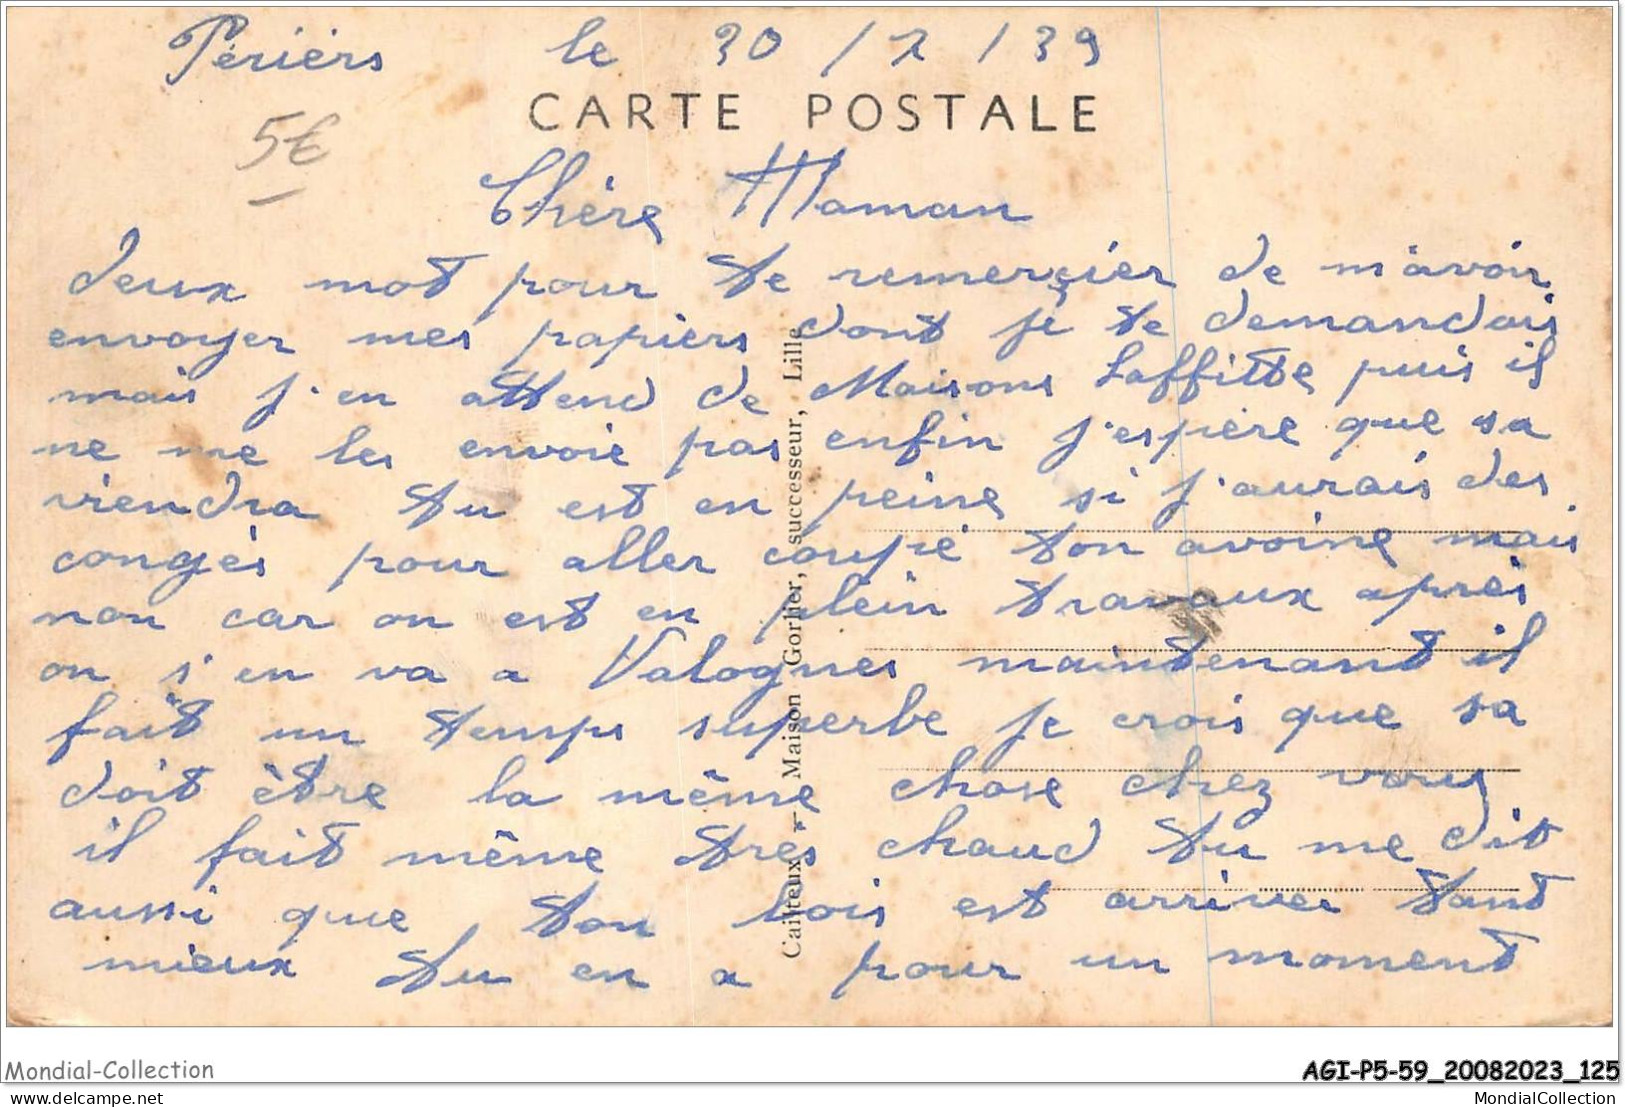 Périérs le 30/7/39
CARTE POSTALE
5€
Chère Maman
deux mot pour te remerçier de m'avoir
envoyer mes papiers dont je te demandais
mais j'en attend de Maisons Laffitte puis il
ne me les envoie pas enfin j'espère que sa
viendra tu est en peine si j'aurais des
congés pour aller coupé ton avoine mais
non car on est en plein travaux après
on s'en va a Valognes maintenant il
fait un temps superbe je crois que sa
doit être la même chose chez vous
il fait même très chaud tu me dit
aussi que ton bois est arriver tant
mieux tu en a pour un moment
Cailteux – Maison Gorlier, successeur, Lille
Mondial-Collection
AGI-P5-59_20082023_125
delcampe.net
MondialCollection